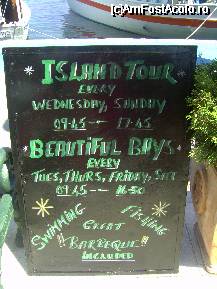 (c)AmFostAcolo.ro
ISLAND TOUR
EVERY
WEDNESDAY, SUNDAY
09.45 -- 17.45
BEAUTIFUL BAYS
EVERY
TUES, THURS, FRIDAY, SAT
09.45 -- 16.30
SWIMMING FISHING
GREAT
"BARBEQUE"
INCLUDED